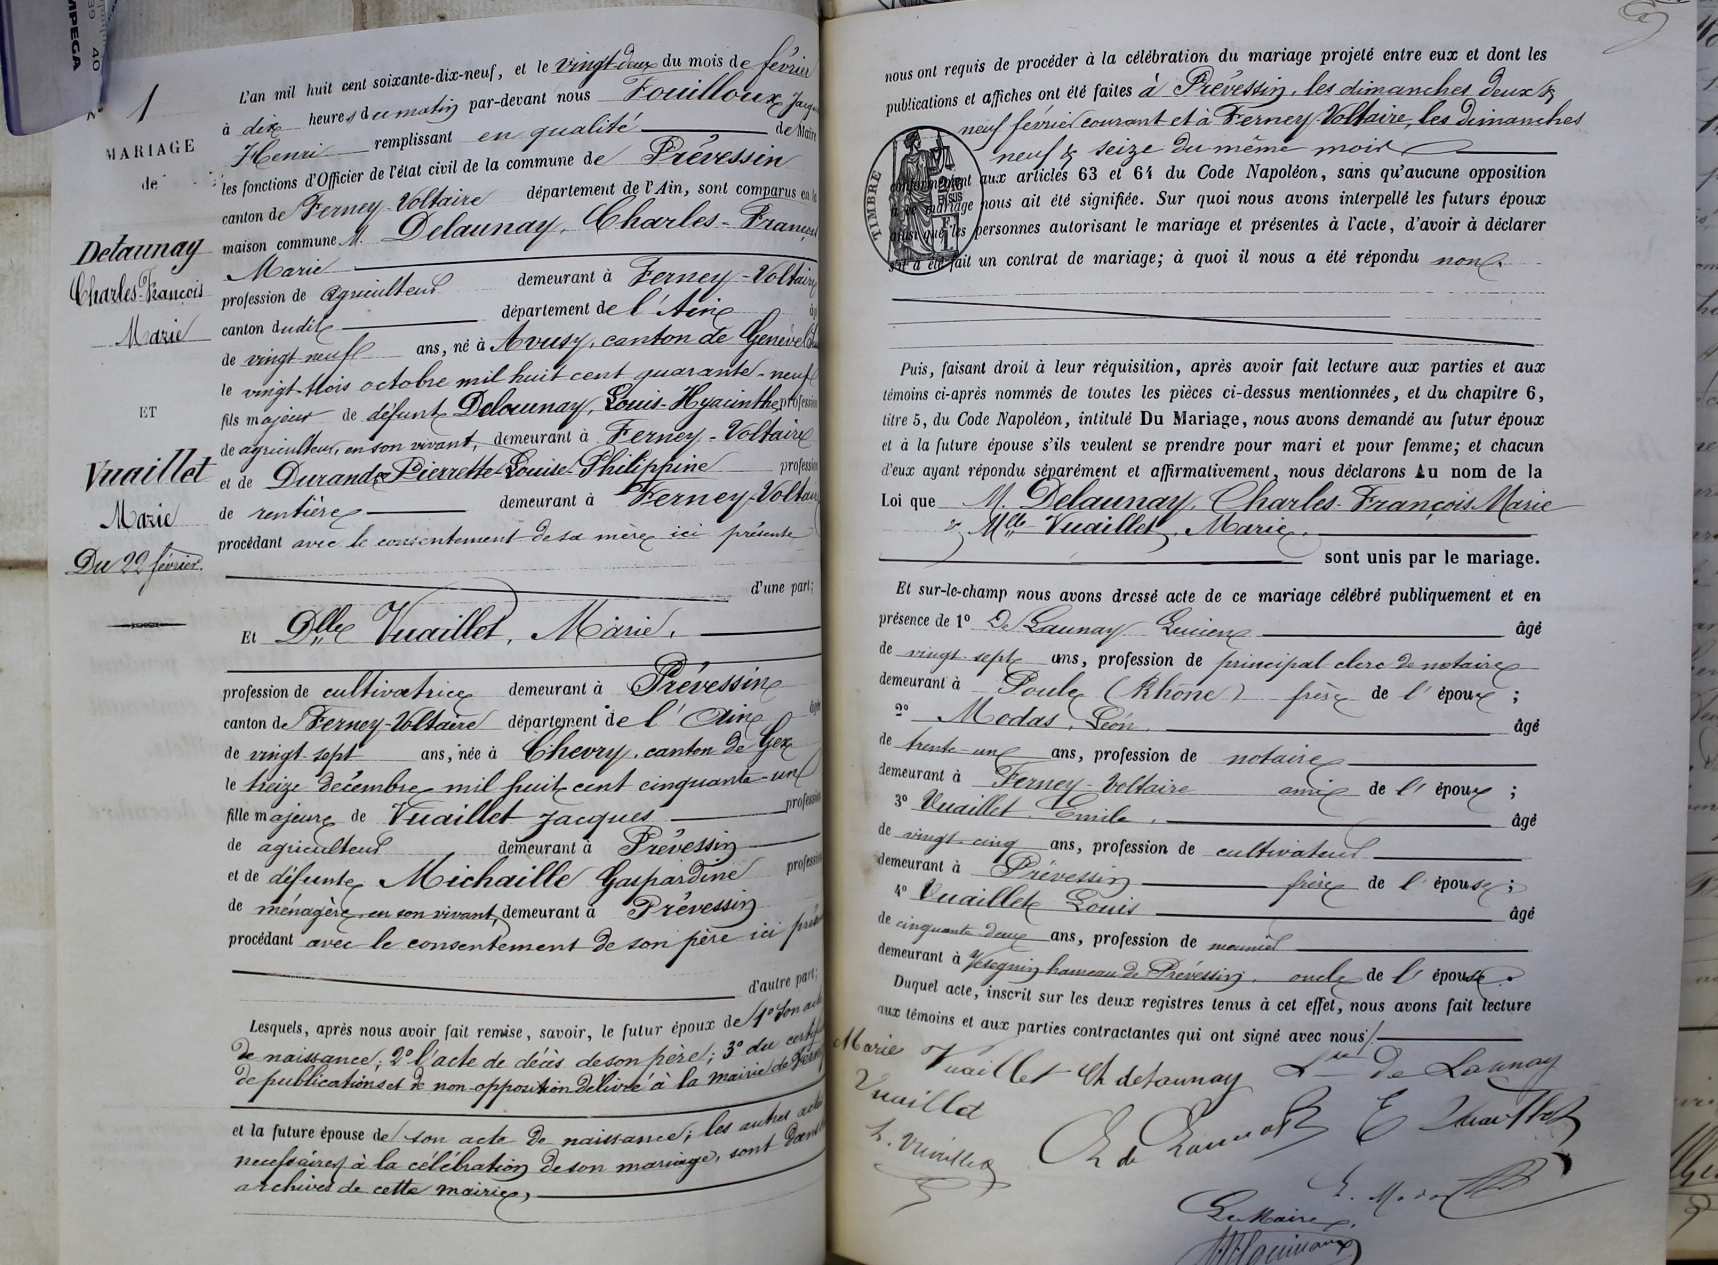 1
MARIAGE
de
Delaunay
Charles-François
Marie
ET
Vuaillet
Marie
Du 22 février.
L'an mil huit cent soixante-dix-neuf, et le vingt-deux du mois de février
à dix heures du matin par-devant nous Fouilloux
Henri remplissant en qualité de Maire
les fonctions d'Officier de l'état civil de la commune de Prévessin
canton de Ferney-Voltaire département de l'Ain, sont comparus en la
maison commune M. Delaunay, Charles-François
Marie
profession de agriculteur demeurant à Ferney-Voltaire
canton dudit département de l'Ain
de vingt-neuf ans, né à Avusy, canton de Genève
le vingt-trois octobre mil huit cent quarante-neuf
fils majeur de défunt Delaunay, Louis-Hyacinthe, profession
de agriculteur, en son vivant, demeurant à Ferney-Voltaire
et de Durand Pierrette-Louise-Philippine profession
de rentière demeurant à Ferney-Voltaire
procédant avec le consentement de sa mère ici présente
d'une part;
Et Dlle Vuaillet, Marie,
profession de cultivatrice demeurant à Prévessin
canton de Ferney-Voltaire département de l'Ain
de vingt-sept ans, née à Chevry, canton de Gex
le treize décembre mil huit cent cinquante-un
fille majeure de Vuaillet Jacques profession
de agriculteur demeurant à Prévessin
et de défunte Michaille Gaspardine profession
de ménagère en son vivant, demeurant à Prévessin
procédant avec le consentement de son père ici
d'autre part;
Lesquels, après nous avoir fait remise, savoir, le futur époux de 1° Son acte
de naissance; 2° l'acte de décès de son père; 3° du
de publications et de non-opposition délivré à la mairie de
et la future épouse de son acte de naissance; les autres actes
necessaires à la célébration de son mariage, sont dans
archives de cette mairie,
nous ont requis de procéder à la célébration du mariage projeté entre eux et dont les
publications et affiches ont été faites à Prévessin, les dimanches deux &
neuf février courant et à Ferney-Voltaire, les dimanches
neuf & seize du même mois
TIMBRE
conformément aux articles 63 et 64 du Code Napoléon, sans qu'aucune opposition
à ce mariage nous ait été signifiée. Sur quoi nous avons interpellé les futurs époux
ainsi que les personnes autorisant le mariage et présentes à l'acte, d'avoir à déclarer
s'il a été fait un contrat de mariage; à quoi il nous a été répondu non.
Puis, faisant droit à leur réquisition, après avoir fait lecture aux parties et aux
témoins ci-après nommés de toutes les pièces ci-dessus mentionnées, et du chapitre 6,
titre 5, du Code Napoléon, intitulé Du Mariage, nous avons demandé au futur époux
et à la future épouse s'ils veulent se prendre pour mari et pour femme; et chacun
d'eux ayant répondu séparément et affirmativement, nous déclarons Au nom de la
Loi que M. Delaunay, Charles-François Marie
& Mlle Vuaillet, Marie,
sont unis par le mariage.
Et sur-le-champ nous avons dressé acte de ce mariage célébré publiquement et en
présence de 1° De Launay Lucien âgé
de vingt-sept ans, profession de principal clerc de notaire
demeurant à Poule (Rhône) frère de l'époux;
2° Modas, Léon, âgé
de trente-un ans, profession de notaire
demeurant à Ferney-Voltaire ami de l'époux;
3° Vuaillet, Emile, âgé
de vingt-cinq ans, profession de cultivateur
demeurant à Prévessin frère de l'épouse;
4° Vuaillet Louis âgé
de cinquante-deux ans, profession de meunier
demeurant à Vésegnin hameau de Prévessin, oncle de l'épouse.
Duquel acte, inscrit sur les deux registres tenus à cet effet, nous avons fait lecture
aux témoins et aux parties contractantes qui ont signé avec nous.
Marie Vuaillet Ch delaunay Lien De Launay
Vuaillet
L. Vuaillet
E Vuaillet
Le Maire,